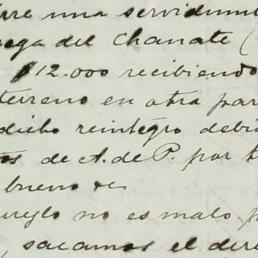 una servidum
ega del Chanate (
$12.000 recibiendo
terreno en otra par
dicho reintegro debi
de A. de P. por
bueno &c
reglo no es malo p
, sacamos el der